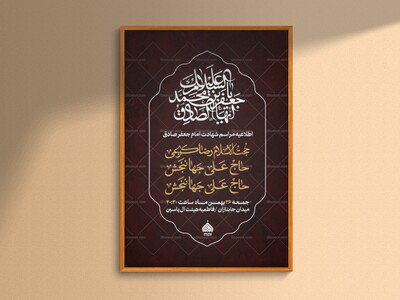 السلام علیک یا جعفر بن محمد ایها الصادق
اطلاعیه مراسم شهادت امام جعفر صادق
حجت الاسلام رضا کریمی
حاج علی جهانبخش
حاج علی جهانبخش
جمعه ۲۶ بهمن ماه ساعت ۲۰:۳۰
میدان جانبازان / فاطمیه هیئت ال یاسین